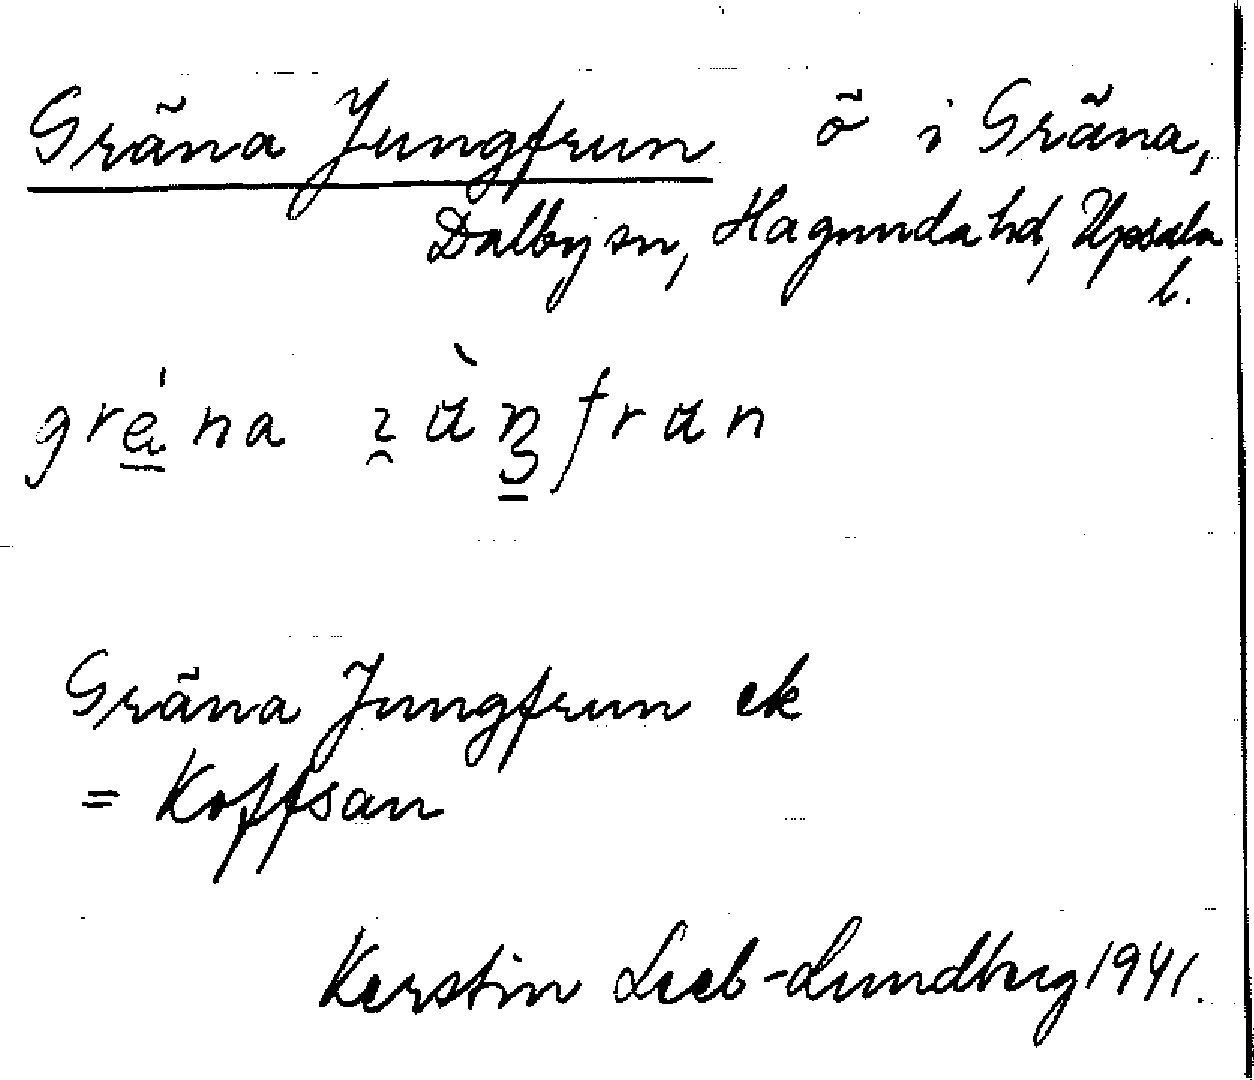 Gräna Jungfrun ö i Gräna,
Dalby sn, Hagunda hd, Upsala
l.
Gräna Jungfrun ek
= Koffsan
Kerstin Leeb-Lundberg 1941.